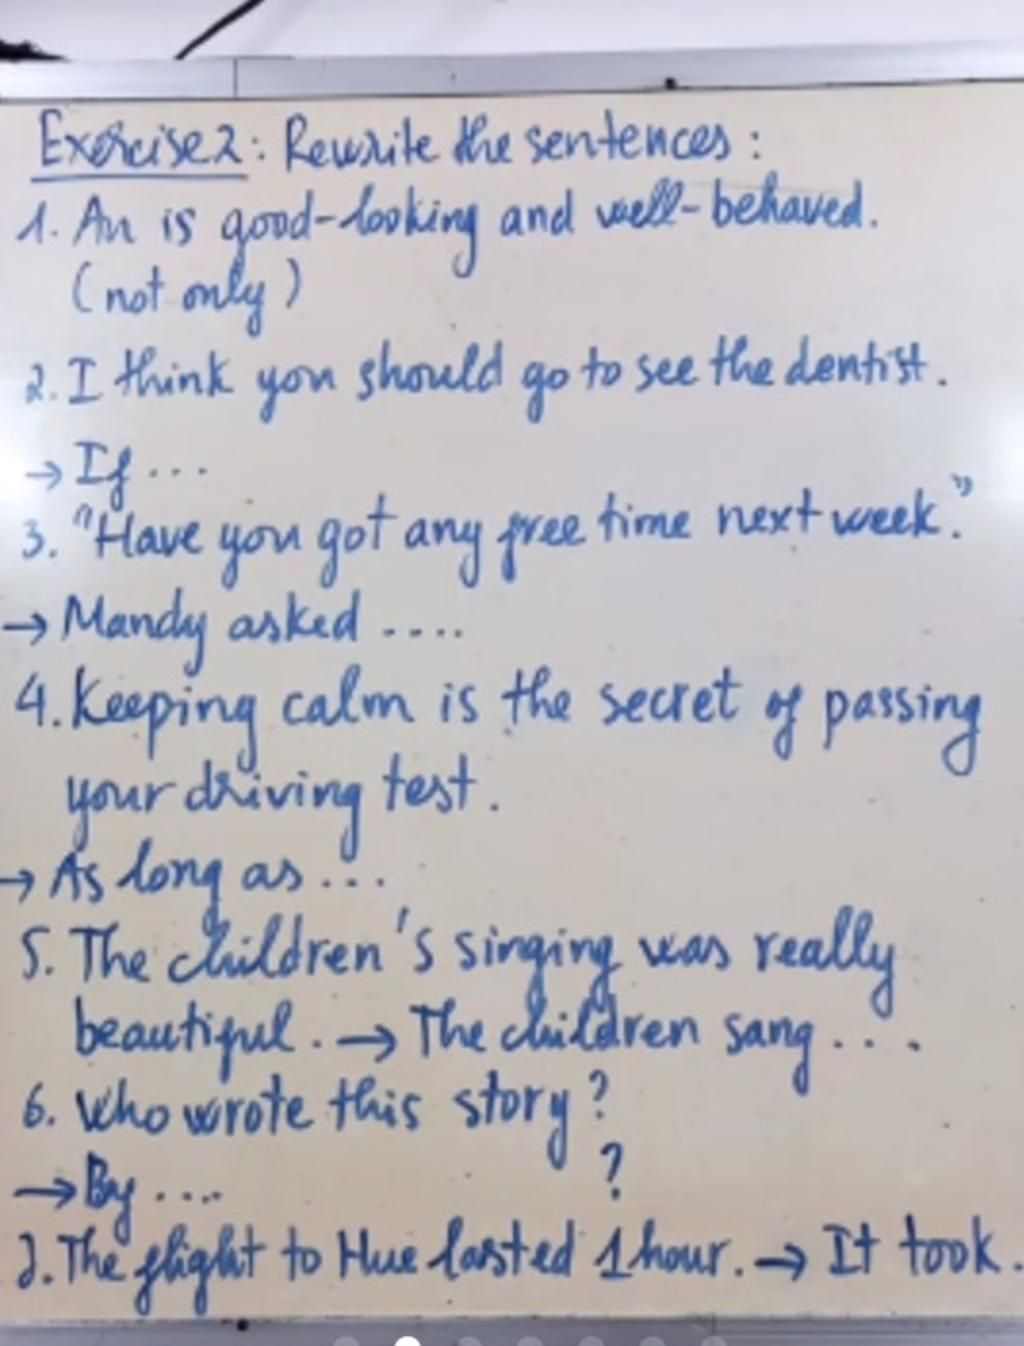 Exercise 2: Rewrite the sentences:
1. An is good-looking and well-behaved.
(not only)
2. I think you should go to see the dentist.
→ If ...
3. "Have you got any free time next week."
→ Mandy asked ....
4. Keeping calm is the secret of passing
your driving test.
→ As long as ...
5. The children's singing was really
beautiful. → The children sang ....
6. Who wrote this story?
→ By .... ?
7. The flight to Hue lasted 1 hour. → It took.